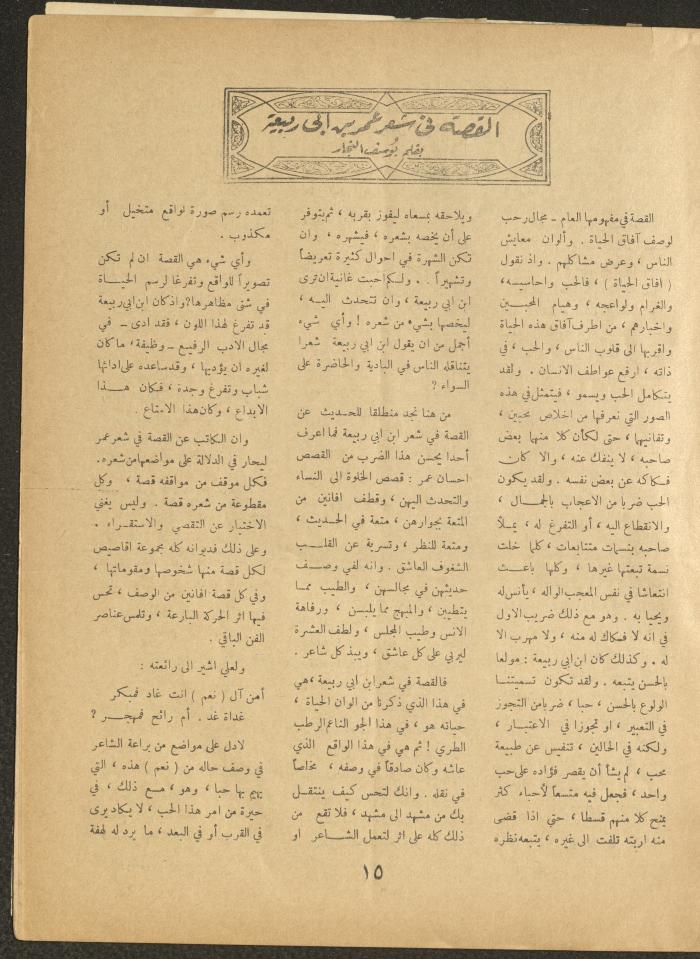 القصة في شعر عمر بن ابي ربيعة
بقلم يوسف النجار
القصة في مفهومها العام ـ مجال رحب
لوصف آفاق الحياة . وألوان معايش
الناس ، وعرض مشاكلهم . واذ نقول
( افاق الحياة ) ، فالحب واحاسيسه ،
والغرام ولواعجه ، وهيام المحبين
واخبارهم ، من اطرف آفاق هذه الحياة
واقربها الى قلوب الناس ، والحب ، في
ذاته ، ارفع عواطف الانسان . ولقد
يتكامل الحب ويسمو ، فيتمثل في هذه
الصور التي نعرفها من اخلاص محبين ،
وتفانيها ، حتى لكأن كلا منها بعض
صاحبه ، لا ينفك عنه ، والا كان
فكاكه عن بعض نفسه . ولقد يكون
الحب ضربا من الاعجاب بالجمال ،
والانقطاع اليه ، أو التفرغ له ، يملأ
صاحبه بنسمات متتابعات ، كلما خلت
نسمة تبعتها غيرها ، وكلها باعث
انتعاشا في نفس المعجب الواله ، يأنس له
ويحيا به . وهو مع ذلك ضريب الاول
في انه لا فكاك له منه ، ولا مهرب الا
له . وكذلك كان ابن ابي ربيعة : مولعا
بالحسن يتبعه . ولقد تكون تسميتنا
الولوع بالحسن ، حبا ، ضربا من التجوز
في التعبير ، او تجوزا في الاعتبار ،
ولكنه في الحالين ، تنفيس عن طبيعة
محب ، لم يشأ أن يقصر فؤاده على حب
واحد ، فجعل فيه متسعاً لأحباء كثر
يمنح كلا منهم قسطا ، حتى اذا قضى
منه اربته تلفت الى غيره ، يتبعه نظره
ويلاحقه بمسعاه ليفوز بقربه ، ثم يتوفر
على أن يخصه بشعره ، فيشهره ، وان
تكن الشهرة في احوال كثيرة تعريضاً
وتشهيراً . . ولكم احبت غانية ان ترى
ابن ابي ربيعة ، وان تتحدث اليه ،
ليخصها بشيء من شعره ! وأي شيء
أجمل من ان يقول ابن ابي ربيعة شعرا
يتناقله الناس في البادية والحاضرة على
السواء ؟
من هنا نجد منطلقا للحديث عن
القصة في شعر ابن ابي ربيعة فما اعرف
أحدا يحسن هذا الضرب من القصص
احسان عمر : قصص الخلوة الى النساء
والتحدث اليهن ، وقطف افانين من
المتعة بجوارهن ، متعة في الحديث ،
ومتعة للنظر ، وتسرية عن القلب
الشغوف العاشق . وانه لفي وصف
حديثهن في مجالسهن ، والطيب مما
يتطيبن ، والمبهج مما يلبسن ، ورفاهة
الانس وطيب المجلس ، ولطف العشرة
ليربي على كل عاشق ، ويبذ كل شاعر .
فالقصة في شعر ابن ابي ربيعة ، هي
في هذا الذي ذكرنا من الوان الحياة ،
حياته هو ، في هذا الجو الناعم الرطب
الطري ! ثم هي في هذا الواقع الذي
عاشه وكان صادقاً في وصفه ، مخلصاً
في نقله . وانك لتحس كيف ينتقل
بك من مشهد الى مشهد ، فلا تقع من
ذلك كله على اثر لتعمل الشاعر او
تعمده رسم صورة لواقع متخيل أو
مكذوب .
وأي شيء هي القصة ان لم تكن
تصويراً للواقع وتفرغا لرسم الحياة
في شتى مظاهرها ? واذ كان ابن ابي ربيعة
قد تفرغ لهذا اللون ، فقد ادى ـ في
مجال الادب الرفيع ـ وظيفة ، ما كان
لغيره ان يؤديها ، وقد ساعده على ادائها
شباب وتفرغ وجدة ، فكان هذا
الابداع ، وكان هذا الامتاع .
وان الكاتب عن القصة في شعر عمر
ليحار في الدلالة على مواضعها من شعره.
فكل موقف من مواقفه قصة ، وكل
مقطوعة من شعره قصة . وليس يغني
الاختيار عن التقصي والاستقراء .
وعلى ذلك فديوانه كله مجموعة اقاصيص
لكل قصة منها شخوصها ومقوماتها ،
وفي كل قصة افانين من الوصف ، تحس
فيها اثر الحركة البارعة ، وتلمس عناصر
الفن الباقي .
ولعلي اشير الى رائعته :
أمن آل ( نعم ) انت غاد فمبكر
غداة غد . أم رائح فمهجر ؟
لادل على مواضع من براعة الشاعر
في وصف حاله من ( نعم ) هذه ، التي
يهيم بها حبا ، وهو ، مع ذلك ، في
حيرة من امر هذا الحب ، لا يكاد يرى
في القرب أو في البعد ، ما يرد له لهفة
١٥